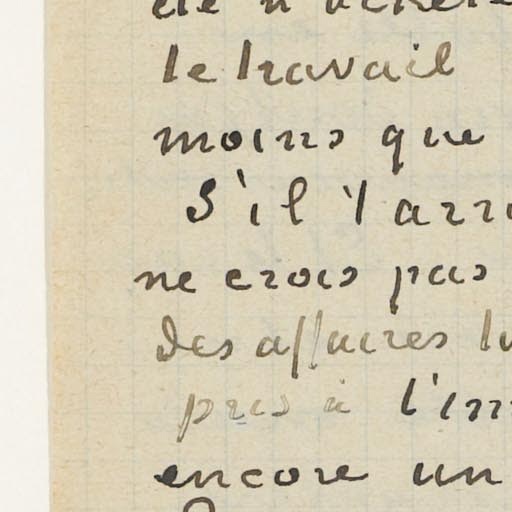 le travail
moins que
S'il
ne crois pas
des affaires
pris à
encore un